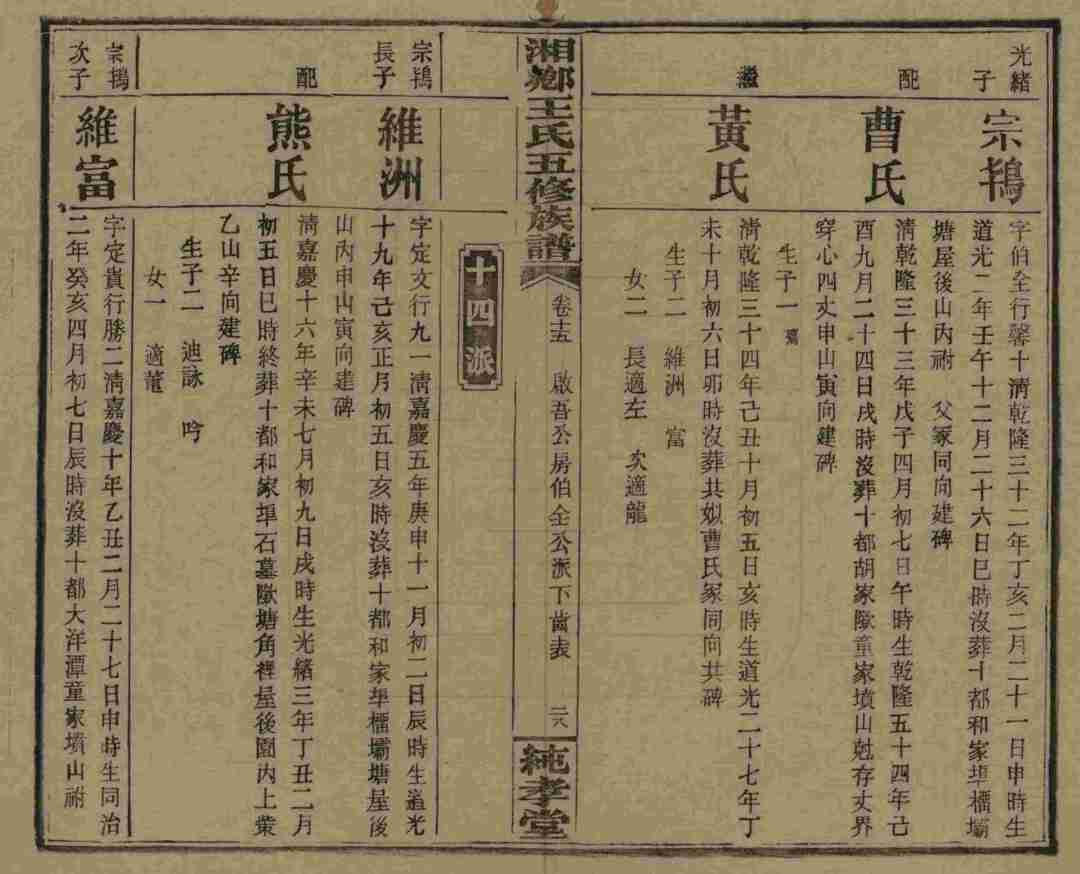 光緒
子
宗鴇
字伯全行馨十清乾隆三十二年丁亥二月二十一日申時生
道光二年壬午十二月二十六日巳時沒葬十都和家埠橿壩
塘屋後山內祔 父冢同向建碑
配
曹氏
清乾隆三十三年戊子四月初七日午時生乾隆五十四年己
酉九月二十四日戌時沒葬十都胡家墩童家墳山兙存丈界
穿心四丈申山寅向建碑
生子一
繼
黃氏
清乾隆三十四年己丑十月初五日亥時生道光二十七年丁
未十月初六日卯時沒葬共姒曹氏冢同向共碑
生子二 維洲 富
女二 長適左 次適龍
湘鄉王氏五修族譜
卷十五 啟吾公房伯全公派下齒表 二八
純孝堂
十四派
宗鴇
長子
維洲
字定文行九一清嘉慶五年庚申十一月初二日辰時生道光
十九年己亥正月初五日亥時沒葬十都和家埠橿壩塘屋後
山內申山寅向建碑
配
熊氏
清嘉慶十六年辛未七月初九日戌時生光緒三年丁丑二月
初五日巳時終葬十都和家埠石墓墩塘角裡屋後園內上
乙山辛向建碑
生子二 迪詠 吟
女一 適龍
宗鴇
次子
維富
字定貴行勝二清嘉慶十年乙丑二月二十七日申時生同治
二年癸亥四月初七日辰時沒葬十都大洋潭童家墳山祔